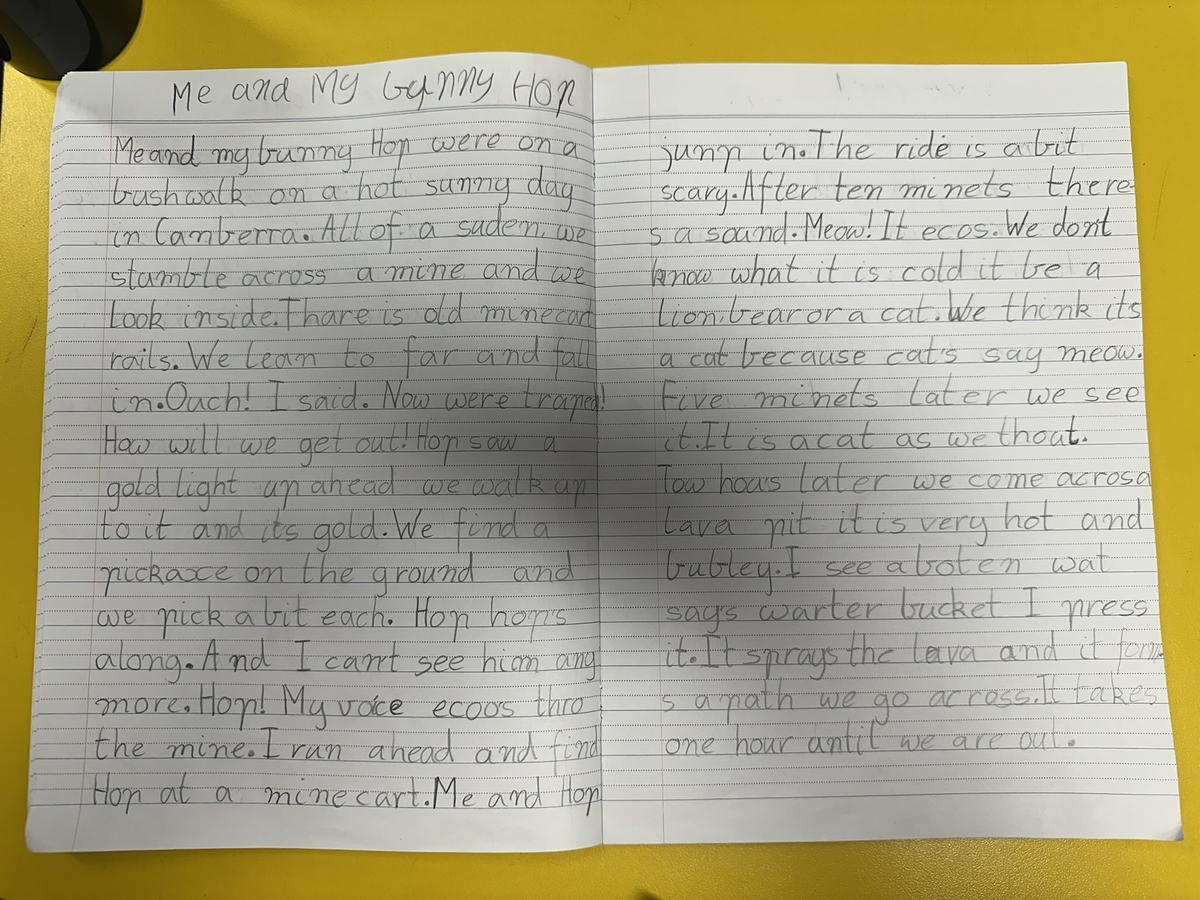 Me and My bunny Hop
Me and my bunny Hop were on a
bushwalk on a hot sunny day
in Canberra. All of a suden we
stumble across a mine and we
look inside. Thare is old minecart
rails. We lean to far and fall
in. Ouch! I said. Now were traped!
How will we get out! Hop saw a
gold light up ahead we walk up
to it and its gold. We find a
pickaxe on the ground and
we pick a bit each. Hop hop's
along. And I can't see hiom any
more. Hop! My voice ecoos thro
the mine. I run ahead and find
Hop at a minecart. Me and Hop
jump in. The ride is a bit
scary. After ten minets there
s a sound. Meow! It ecos. We don't
know what it is cold it be a
lion, bear or a cat. We think its
a cat because cat's say meow.
Five minets later we see
it. It is a cat as we thout.
Tow hous later we come acros a
lava pit it is very hot and
bubley. I see a boten wat
say's warter bucket I press
it. It sprays the lava and it form
s a path we go across. It takes
one hour until we are out.